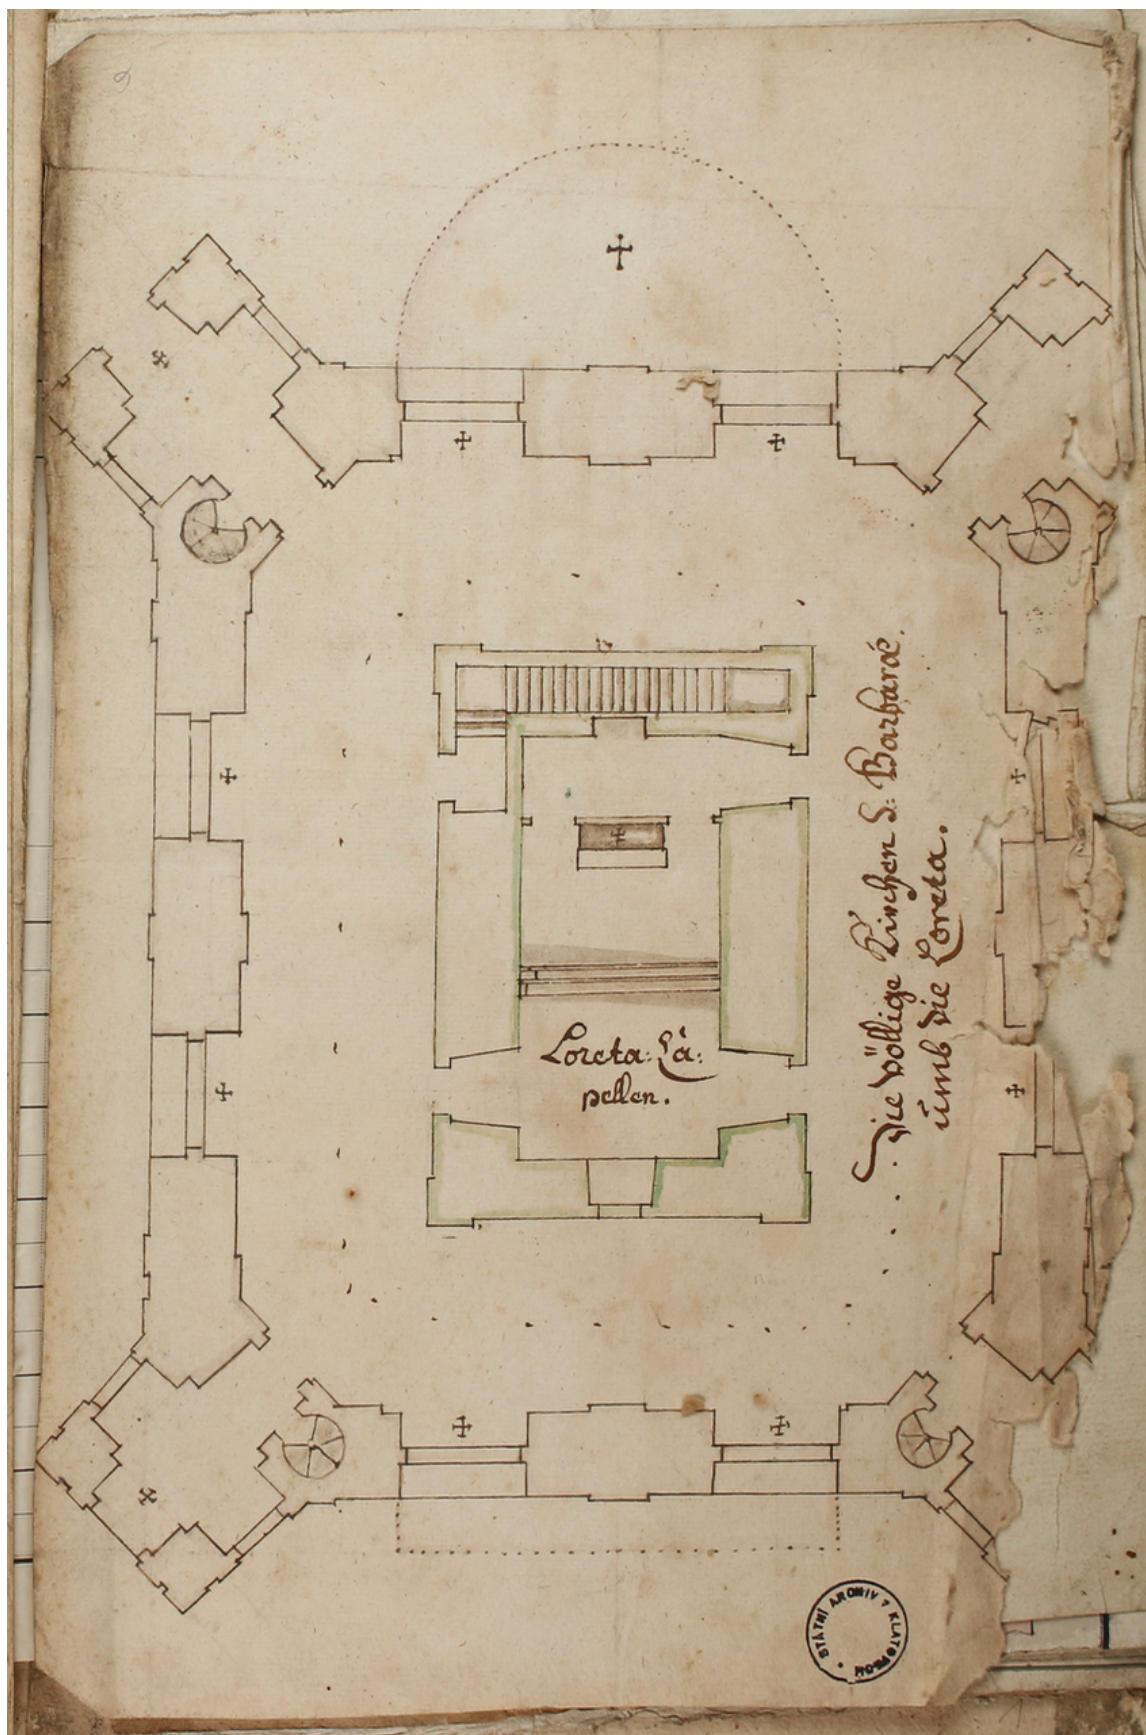 Loreta: Ca:
pellen.
Die völlige Kirchen S: Barbarae.
umb die Loreta.
STÁTNÍ ARCHIV V KLATOVECH